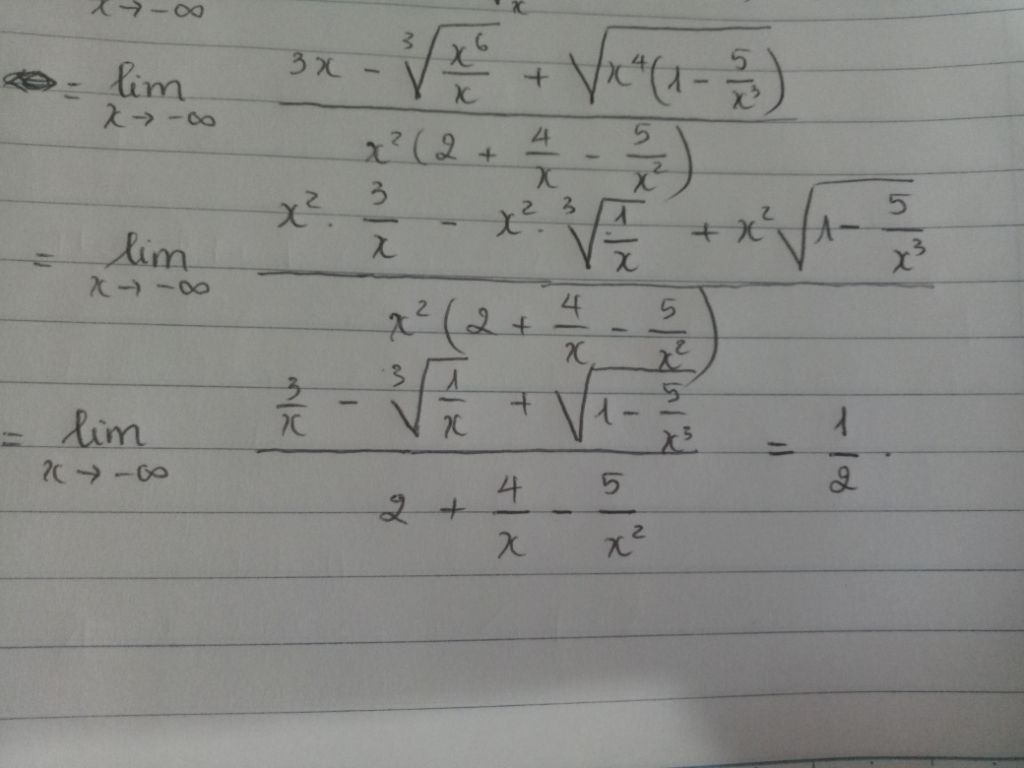 x → -∞ x
= lim x → -∞ (3x - ∛(x⁶/x) + √(x⁴(1 - 5/x³))) / (x²(2 + 4/x - 5/x²))
= lim x → -∞ (x² · 3/x - x² · ∛(1/x) + x²√(1 - 5/x³)) / (x²(2 + 4/x - 5/x²))
= lim x → -∞ (3/x - ∛(1/x) + √(1 - 5/x³)) / (2 + 4/x - 5/x²) = 1/2 .